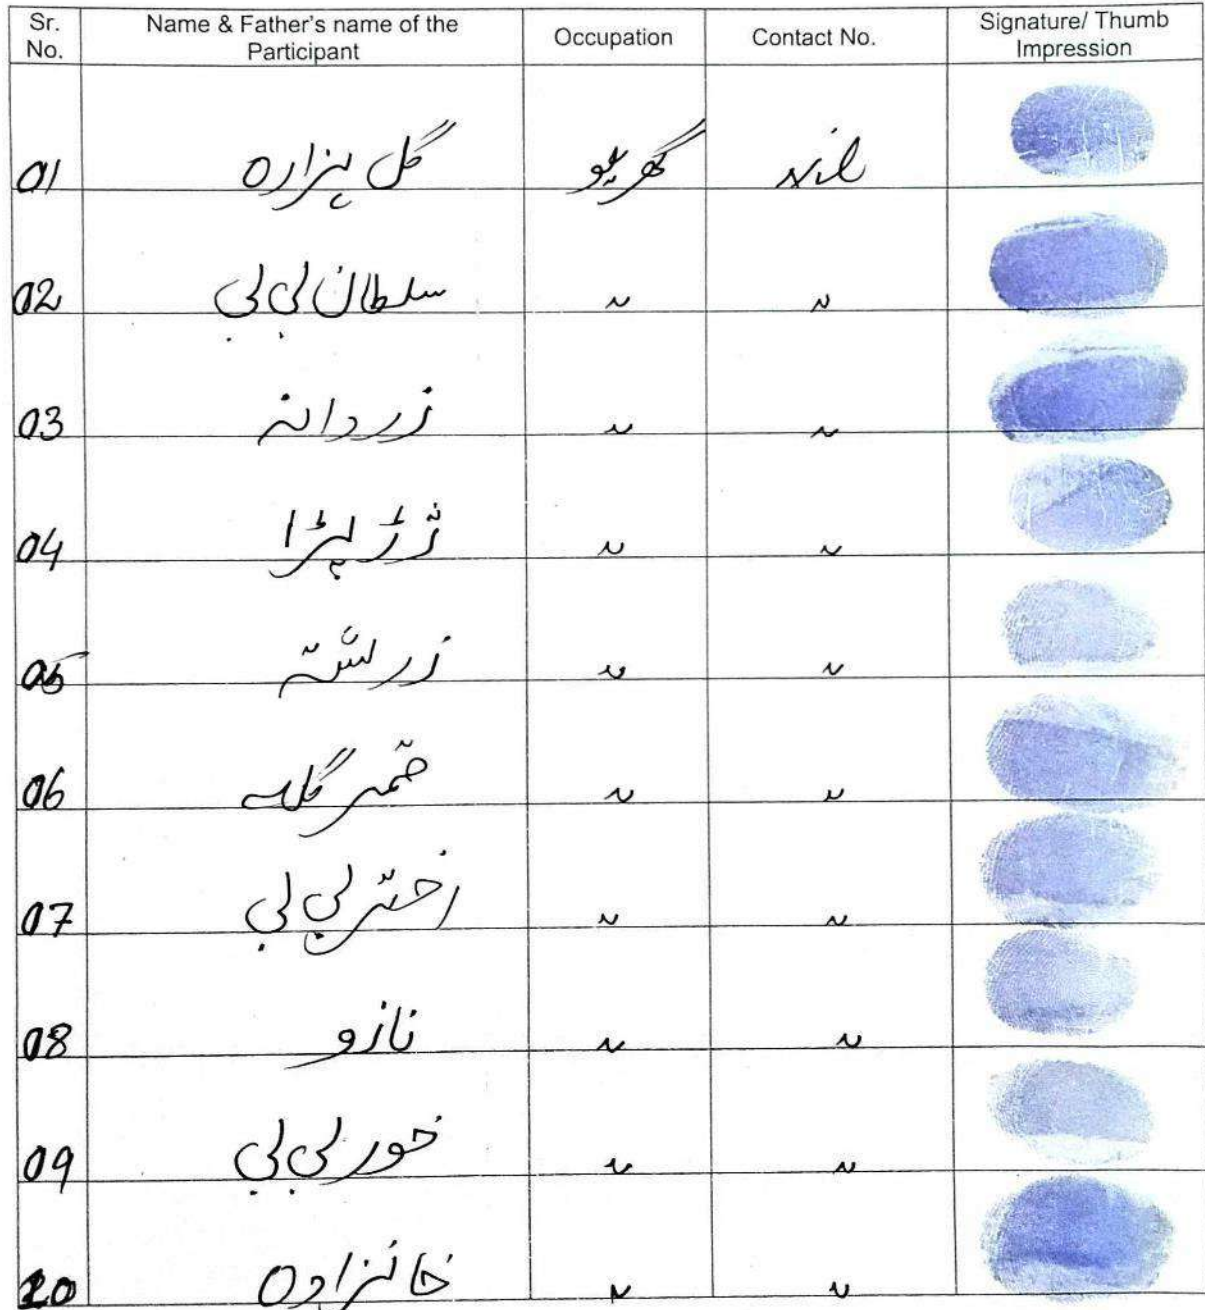 Sr. No. Name & Father's name of the Participant Occupation Contact No. Signature/ Thumb Impression
01 گل ہزارہ گھریلو
02 سلطان بی بی 〃 〃
03 زردانہ 〃 〃
04 〃 〃
05 زرلشتہ 〃 〃
06 گلہ 〃 〃
07 اختر بی بی 〃 〃
08 نازو 〃 〃
09 حور بی بی 〃 〃
10 خانزادہ 〃 〃